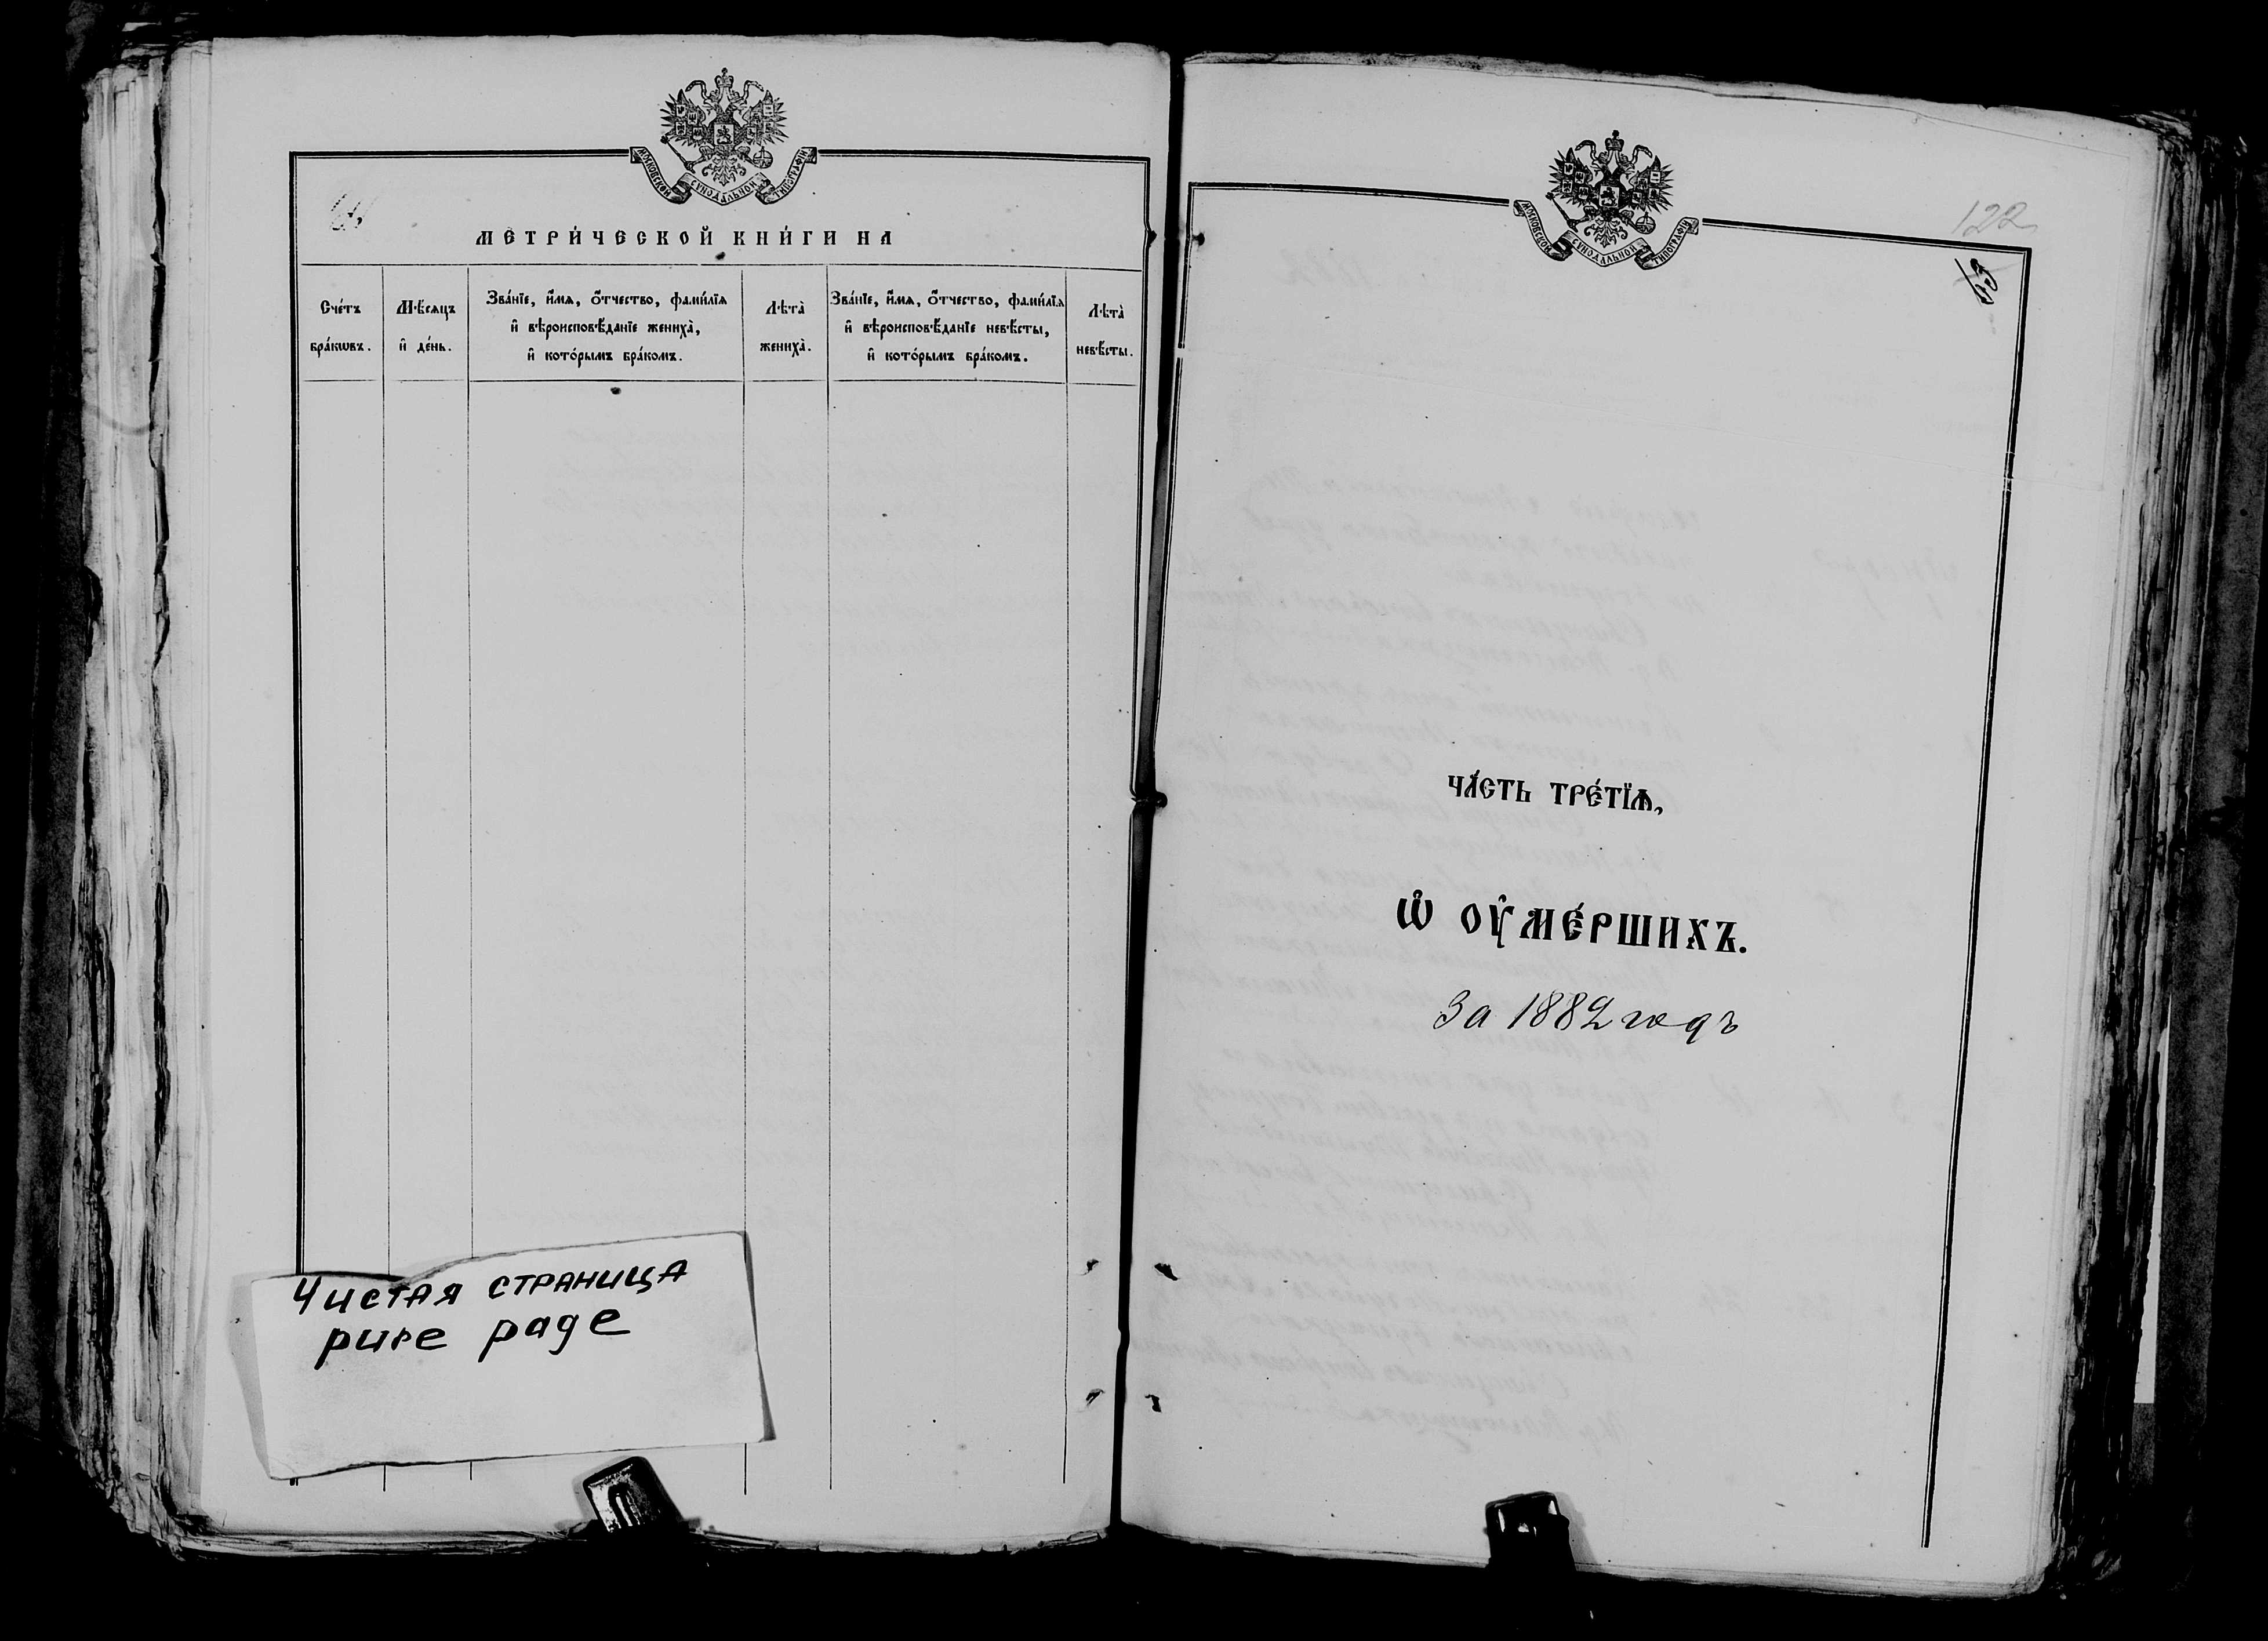 МОСКОВСКОЙ СѴНОДАЛЬНОЙ ТИПОГРАФІИ
МЕТРИ́ЧЕСКОЙ КНИ́ГИ НА
Сче́тъ
бра́кѡвъ.
Мѣ́сяцъ
и҆ де́нь.
Зва́нїе, и҆́мѧ, ѻ҆́тчество, фами́лїѧ
и҆ вѣроисповѣ́данїе жениха̀,
и҆ кото́рымъ бра́комъ.
Лѣ́та̀
жениха̀.
Зва́нїе, и҆́мѧ, ѻ҆́тчество, фами́лїѧ
и҆ вѣроисповѣ́данїе невѣ́сты,
и҆ кото́рымъ бра́комъ.
Лѣ́та̀
невѣ́сты.
Чистая страница
pure page
МОСКОВСКОЙ СѴНОДАЛЬНОЙ ТИПОГРАФІИ
122
63
ЧА́СТЬ ТРЕ́ТЇѦ,
Ѡ҆ ОУ҆МЕ́РШИХЪ.
За 1882 годъ